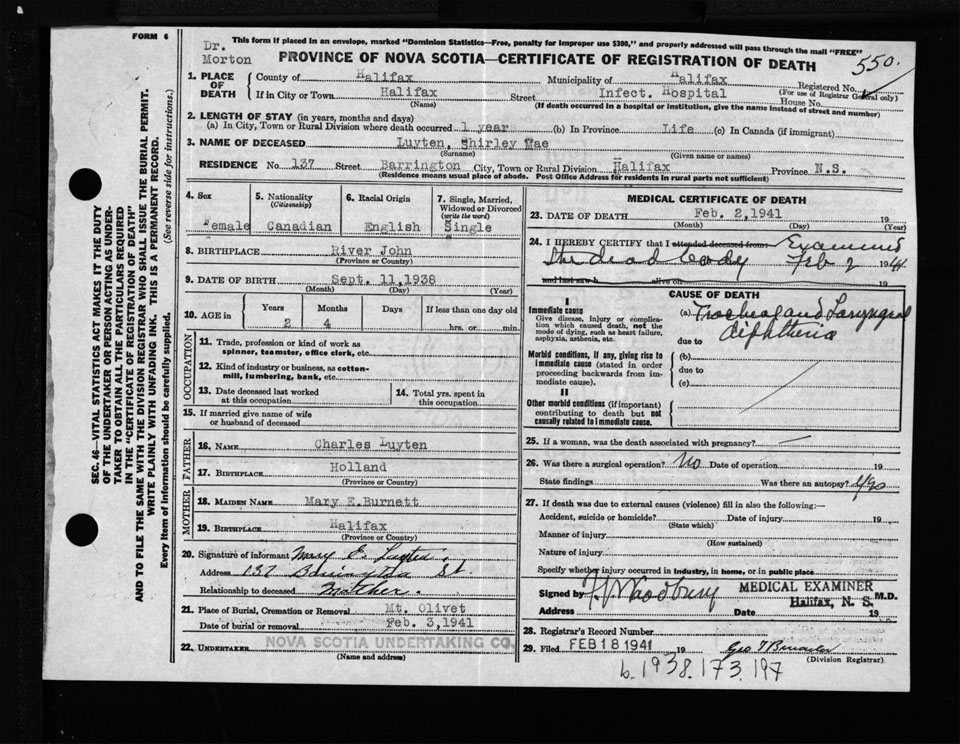 FORM 6
This form if placed in an envelope, marked "Dominion Statistics—Free, penalty for improper use $300," and properly addressed will pass through the mail "FREE"
Dr.
Morton
PROVINCE OF NOVA SCOTIA—CERTIFICATE OF REGISTRATION OF DEATH
550.
SEC. 46—VITAL STATISTICS ACT MAKES IT THE DUTY
OF THE UNDERTAKER OR PERSON ACTING AS UNDER-
TAKER TO OBTAIN ALL THE PARTICULARS REQUIRED
IN THE "CERTIFICATE OF REGISTRATION OF DEATH"
AND TO FILE THE SAME WITH THE DIVISION REGISTRAR WHO SHALL ISSUE THE BURIAL PERMIT.
WRITE PLAINLY WITH UNFADING INK. THIS IS A PERMANENT RECORD.
Every item of information should be carefully supplied. (See reverse side for instructions.)
1. PLACE OF DEATH
County of Halifax Municipality of Halifax Registered No.
(For use of Registrar General only)
If in City or Town Halifax Street Infect. Hospital House No.
(Name) (If death occurred in a hospital or institution, give the name instead of street and number)
2. LENGTH OF STAY (in years, months and days)
(a) In City, Town or Rural Division where death occurred 1 year (b) In Province Life (c) In Canada (if immigrant)
3. NAME OF DECEASED Luyten, Shirley Mae
(Surname) (Given name or names)
RESIDENCE No. 137 Street Barrington City, Town or Rural Division Halifax Province N.S.
(Residence means usual place of abode. Post Office Address for residents in rural parts not sufficient)
4. Sex
Female
5. Nationality
(Citizenship)
Canadian
6. Racial Origin
English
7. Single, Married,
Widowed or Divorced
(write the word)
Single
8. BIRTHPLACE River John
(Province or Country)
9. DATE OF BIRTH Sept. 11,1938
(Month) (Day) (Year)
10. AGE in
Years Months Days If less than one day old
2 4 hrs. or min.
OCCUPATION
11. Trade, profession or kind of work as
spinner, teamster, office clerk, etc.
12. Kind of industry or business, as cotton-
mill, lumbering, bank, etc.
13. Date deceased last worked
at this occupation
14. Total yrs. spent in
this occupation
15. If married give name of wife
or husband of deceased
FATHER
16. NAME Charles Luyten
17. BIRTHPLACE Holland
(Province or Country)
MOTHER
18. MAIDEN NAME Mary E.Burnett
19. BIRTHPLACE Halifax
(Province or Country)
20. Signature of informant Mary E. Luyten
Address 137 Barrington St.
Relationship to deceased Mother.
21. Place of Burial, Cremation or Removal Mt. Olivet
Date of burial or removal Feb. 3,1941
22. UNDERTAKER NOVA SCOTIA UNDERTAKING CO.
(Name and address)
MEDICAL CERTIFICATE OF DEATH
23. DATE OF DEATH Feb. 2,1941 19
(Month) (Day) (Year)
24. I HEREBY CERTIFY that I attended deceased from: Examined
the dead body Feb 2 1941
and last saw h alive on
CAUSE OF DEATH
I
Immediate cause
Give disease, injury or complica-
tion which caused death, not the
mode of dying, such as heart failure,
asphyxia, asthenia, etc.
(a) Tracheal and Laryngeal
due to diphtheria
Morbid conditions, if any, giving rise to
immediate cause (stated in order
proceeding backwards from im-
mediate cause).
(b)
due to
(c)
II
Other morbid conditions (if important)
contributing to death but not
causally related to immediate cause.
25. If a woman, was the death associated with pregnancy? —
26. Was there a surgical operation? No Date of operation 19
State findings Was there an autopsy? Yes
27. If death was due to external causes (violence) fill in also the following:—
Accident, suicide or homicide? Date of injury 19
(State which)
Manner of injury
(How sustained)
Nature of injury
Specify whether injury occurred in industry, in home, or in public place
Signed by Woodbury MEDICAL EXAMINER M.D.
Halifax, N. S.
Address Date 19
28. Registrar's Record Number
29. Filed FEB 18 1941 19
(Division Registrar)
b. 1938.173.197